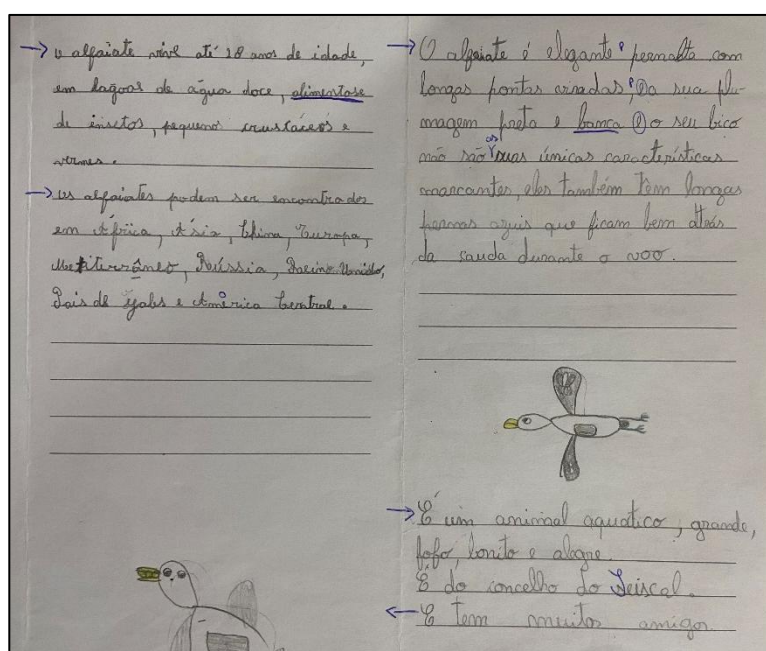 O alfaiate vive até 28 anos de idade,
em lagoas de água doce, alimentase
de insetos, pequenos crustáceos e
vermes.
Os alfaiates podem ser encontrados
em África, Ásia, China, Europa,
Mediterrâneo, Rússia, Reino Unido,
País de Gales e América Central.
O alfaiate é elegante pernalta com
longas pontas viradas, Da sua plu-
magem preta e banca o seu bico
não são as suas únicas características
marcantes, eles também têm longas
pernas azuis que ficam bem atrás
da cauda durante o voo.
É um animal aquático, grande,
fofo, bonito e alegre.
É do concelho do Seixal.
E tem muitos amigos.